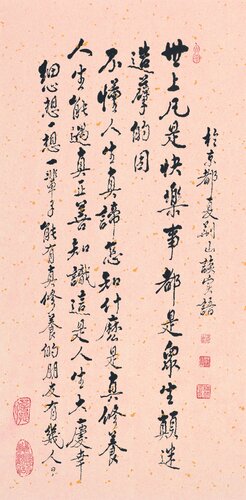 於京都夏荊山
世上凡是快樂事都是眾生顛迷
造孽的因
不懂人生真諦怎知什麼是真修養
人生能遇真正善知識這是人生大慶幸
細心想一想一輩子能有真修養的朋友有幾人